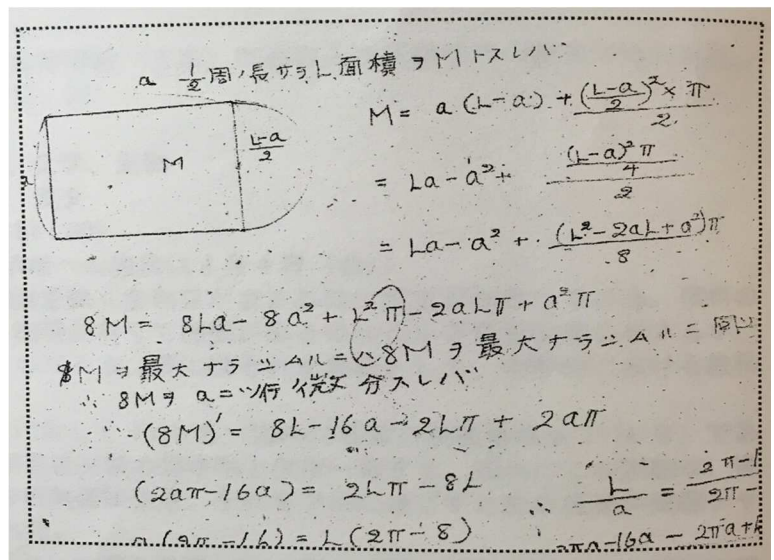 a 1/2 周ノ長サヲL面積ヲMトスレバ
M = a(L-a) + ((L-a)/2)² × π / 2
M
(L-a)/2
= La - a² + ((L-a)²π / 4) / 2
= La - a² + (L² - 2aL + a²)π / 8
8M = 8La - 8a² + L²π - 2aLπ + a²π
Mヲ最大ナラシムルニハ8Mヲ最大ナラシムルニ
∴ 8Mヲ a ニツ行微分スレバ
∴ (8M)' = 8L - 16a - 2Lπ + 2aπ
(2aπ - 16a) = 2Lπ - 8L
∴ L/a = 2π-1 / 2π-
(2π - 16) = L(2π - 8)
πa - 16a - 2πa +